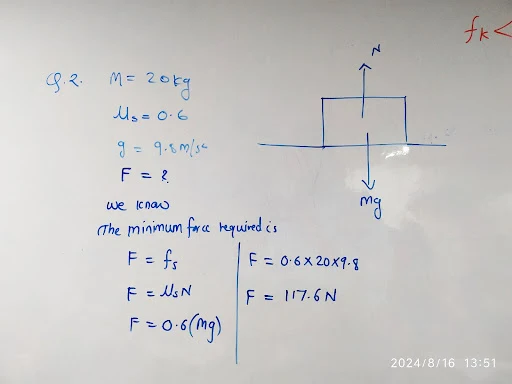 fk <
Q.2. M = 20kg
μs = 0.6
g = 9.8 m/s
F = ?
we know
The minimum force required is
F = fs
F = μsN
F = 0.6(Mg)
F = 0.6×20×9.8
F = 117.6 N
N
Mg
2024/8/16 13:51